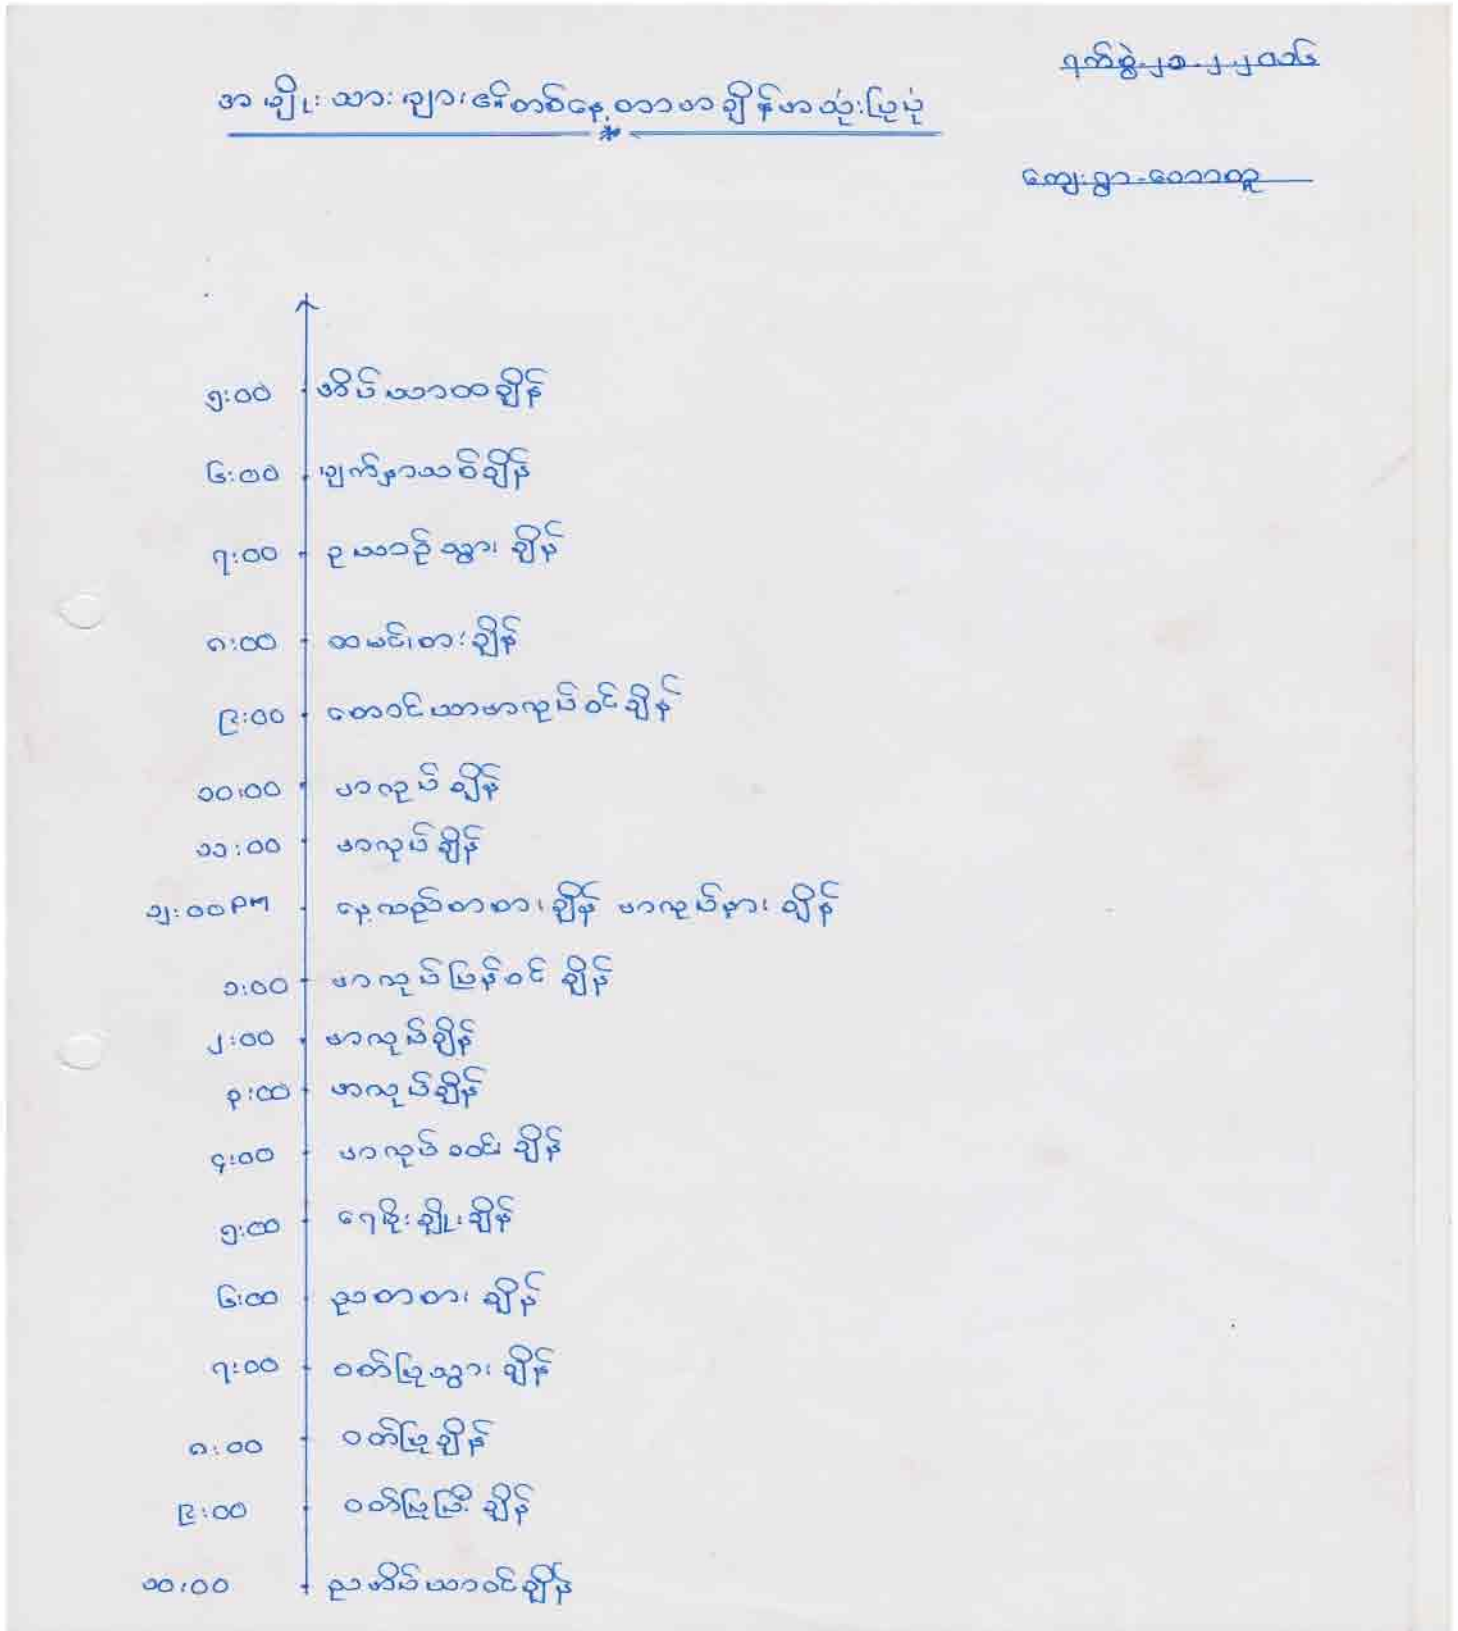 ရက်စွဲ-၂၁-၂-၂၀၁၆
အမျိုးသားများ၏တစ်နေ့တာအချိန်အသုံးပြုပုံ
ကျေးရွာ-ဝေါတူ
၅:၀၀ အိပ်ယာထချိန်
၆:၀၀ မျက်နှာသစ်ချိန်
၇:၀၀ ဥယာဉ်သွားချိန်
၈:၀၀ ထမင်းစားချိန်
၉:၀၀ တောင်ယာအလုပ်ဝင်ချိန်
၁၀:၀၀ အလုပ်ချိန်
၁၁:၀၀ အလုပ်ချိန်
၁၂:၀၀PM နေ့လည်စာစားချိန် အလုပ်နားချိန်
၁:၀၀ အလုပ်ပြန်ဝင်ချိန်
၂:၀၀ အလုပ်ချိန်
၃:၀၀ အလုပ်ချိန်
၄:၀၀ အလုပ်ဆင်းချိန်
၅:၀၀ ရေမိုးချိုးချိန်
၆:၀၀ ညစာစားချိန်
၇:၀၀ ဝတ်ပြုသွားချိန်
၈:၀၀ ဝတ်ပြုချိန်
၉:၀၀ ဝတ်ပြုပြီးချိန်
၁၀:၀၀ ညအိပ်ယာဝင်ချိန်